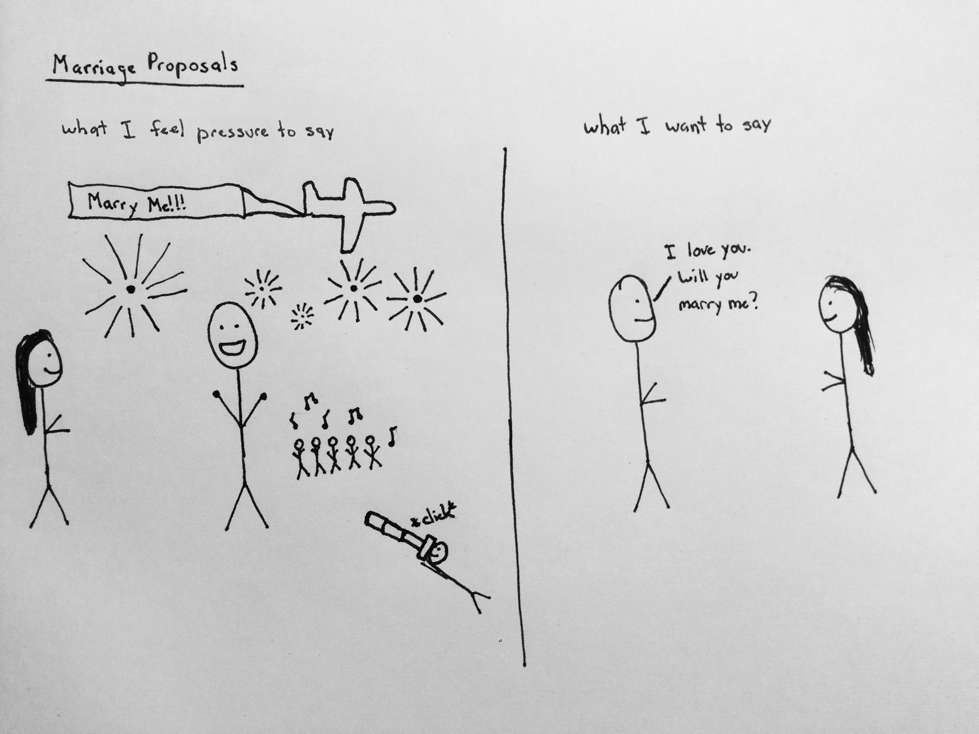 Marriage Proposals
what I feel pressure to say
Marry Me!!!
*click*
what I want to say
I love you.
Will you
marry me?